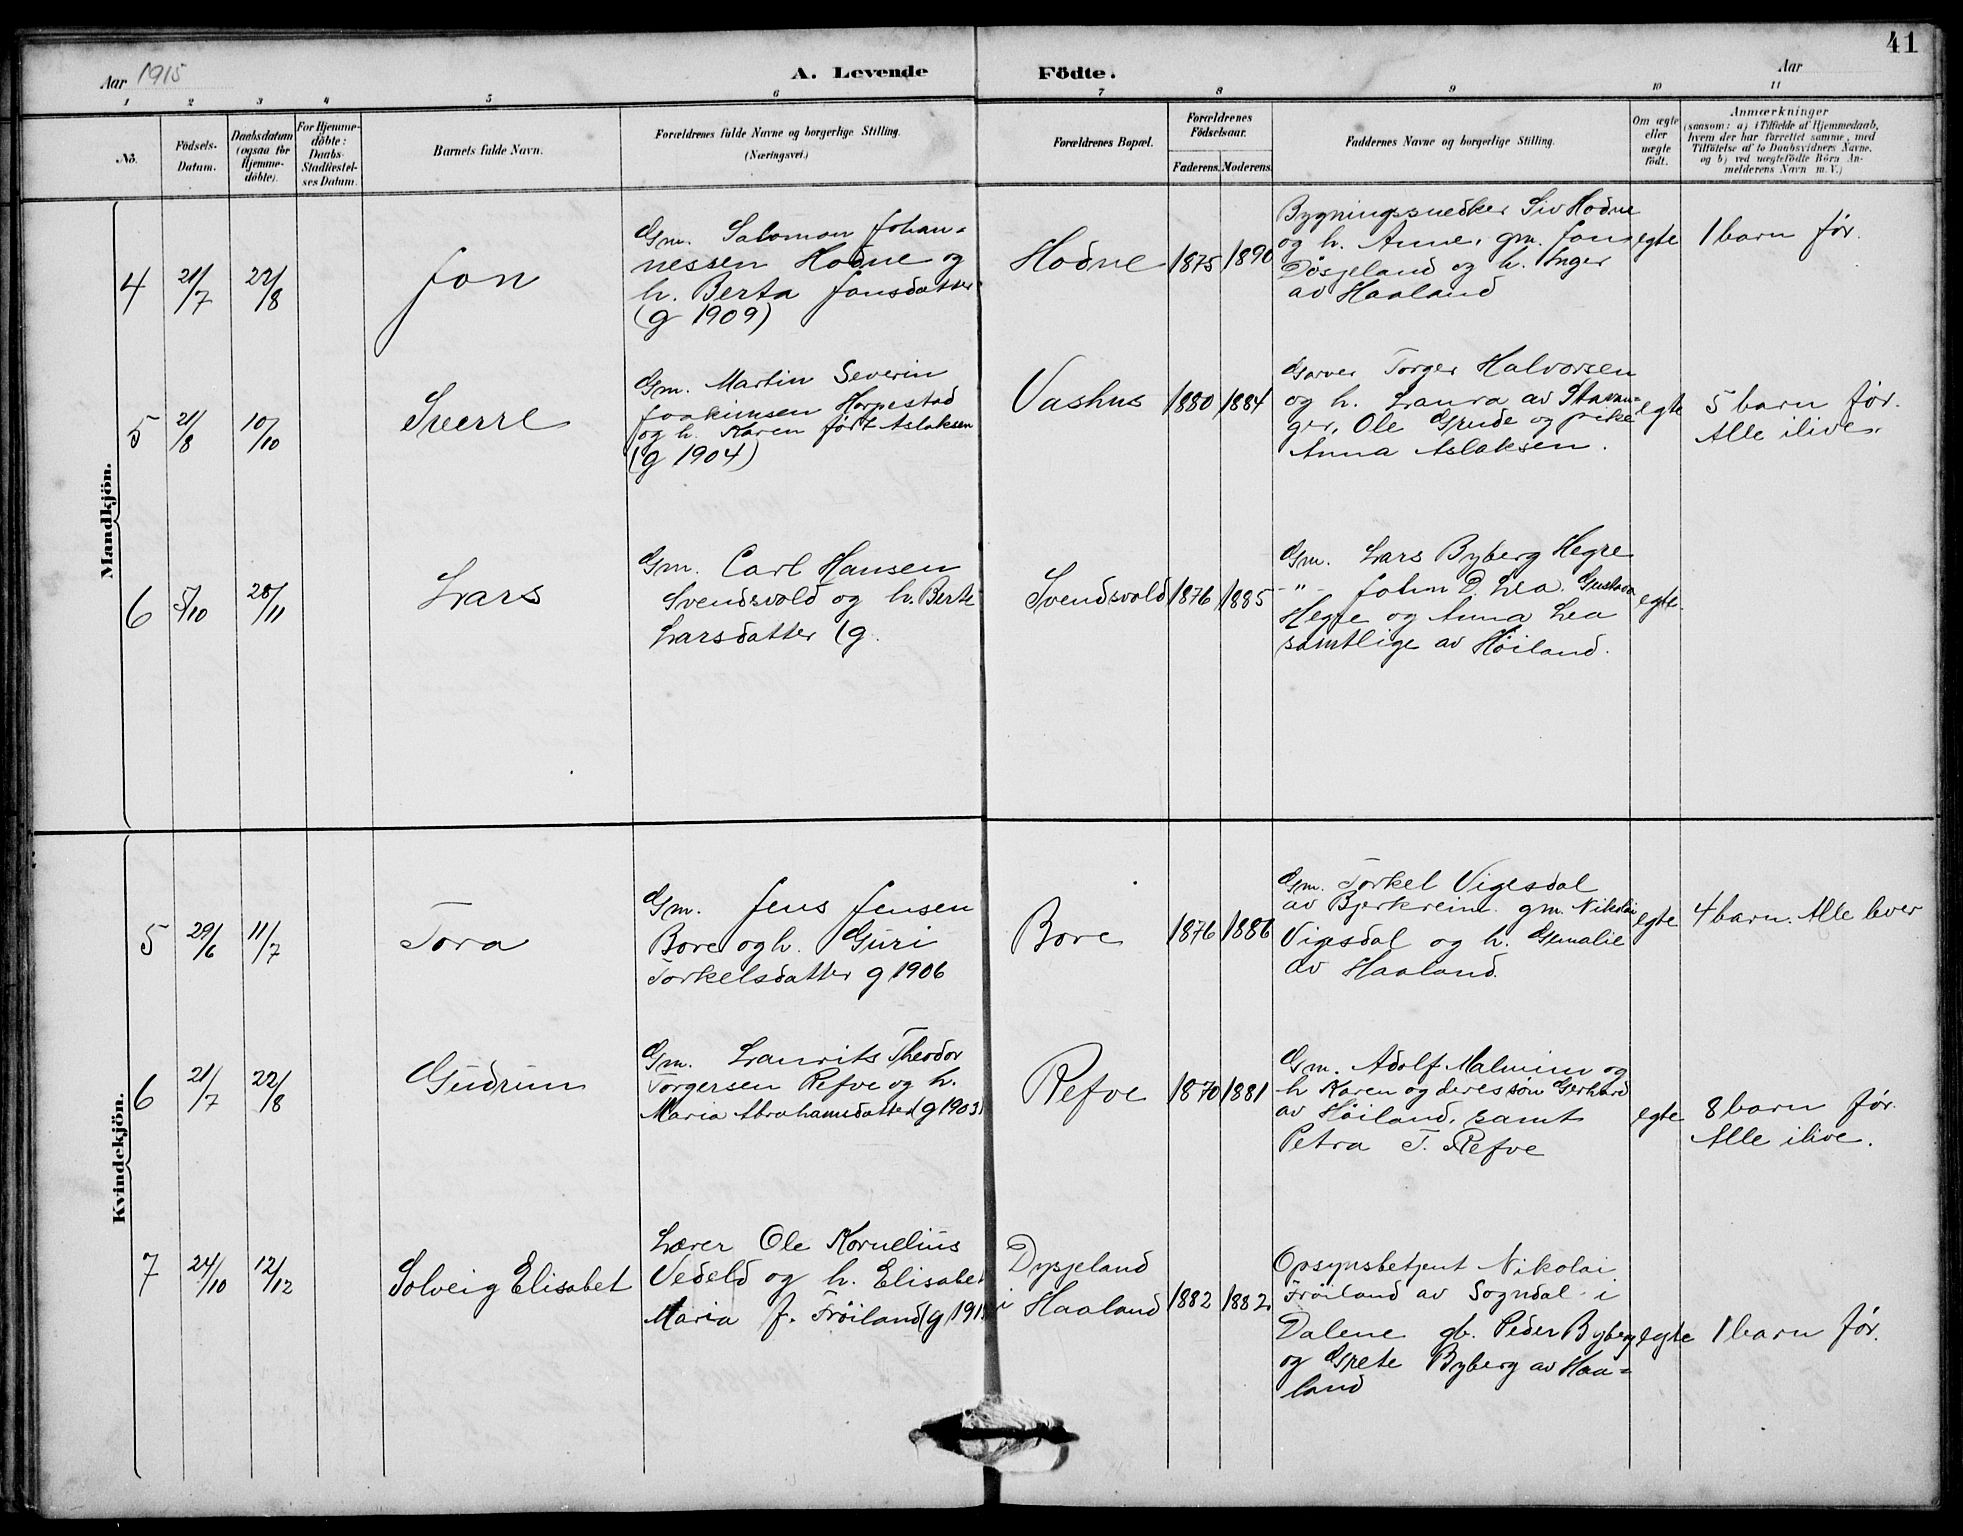 41
Aar 1915 A. Levende Födte. Aar
1 2 3 4 5 6 7 8 9 10 11
No.
Födsels-
Datum.
Daabsdatum
(ogsaa for
Hjemme-
döbte).
For Hjemme-
döbte:
Daabs-
Stadfæstel-
ses Datum.
Barnets fulde Navn.
Forældrenes fulde Navne og borgerlige Stilling.
(Næringsvei.)
Forældrenes Bopæl.
Forældrenes
Födselsaar.
Faderens. Moderens.
Faddernes Navne og borgerlige Stilling.
Om ægte
eller
uægte
födt.
Anmærkninger
(saasom: a) i Tilfælde af Hjemmedaab,
hvem der har forrettet samme, med
Tilföielse af to Daabsvidners Navne,
og b) ved uægtefödte Börn An-
melderens Navn m. V.)
Mandkjön.
4
21/7
22/8
Jon
Gm. Salomon Johan-
nessen Hodne og
h. Berta Jonsdatter
(g 1909)
Hodne
1875 1890
Bygningssnedker Siv Hodne
og h. Anne, gm. Jons
Dösjeland og h. Inger
av Haaland
egte
1 barn før.
5
21/8
10/10
Sverre
Gm. Martin Severin
Joakimsen Horpestad
og h. Karen født Aslaksen
(g 1904)
Vashus
1880 1884
Garver Torger Halvorsen
og h. Laura av Stavan-
ger, Ole Grude og pike
Anna Aslaksen.
egte
5 barn før.
Alle ilive.
6
5/10
28/11
Lars
Gm. Carl Hansen
Svendsvold og h. Berte
Larsdatter (g.
Svendsvold
1876 1885
Gm. Lars Byberg Hegre
-"- John D. Lea. Gustava
Hegre og Anna Lea
samtlige av Höiland.
egte.
Kvindekjön.
5
29/6
11/7
Tora
Gm. Jens Jensen
Bore og h. Guri
Torkelsdatter g 1906
Bore
1876 1886
Gm. Torkel Vigesdal
av Bjerkreim. gm. Nikolai
Vigesdal og h. Gemalie
av Haaland.
egte
4 barn. Alle lever
6
21/7
22/8
Gudrun
Gm. Laurits Theodor
Torgersen Refve og h.
Maria Abrahamsdatter (g 1903)
Refve
1870 1881
Gm. Adolf Malmin og
h Karen og deres søn Gerhard
av Höiland, samt
Petra T. Refve
egte
8 barn før.
Alle ilive.
7
24/10
12/12
Solveig Elisabet
Lærer Ole Kornelius
Vedeld og h. Elisabet
Maria f. Fröiland (g 191
Dysjeland
i Haaland
1882 1882
Opsynsbetjent Nikolai
Fröiland av Sogndal i
Dalene gb. Peder Byberg
og Grete Byberg av Haa-
land
egte
1 barn før.